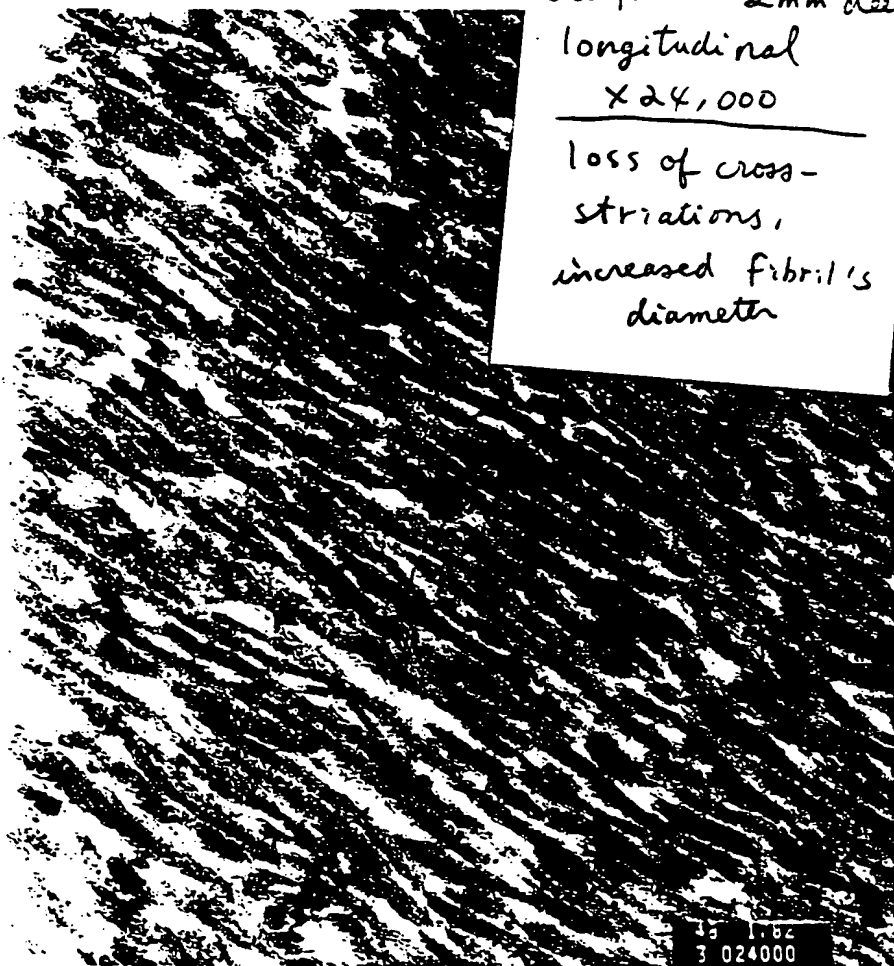 2mm
longitudinal
x 24,000
loss of cross-
striations,
increased fibril's
diameter
1.82
3 024000